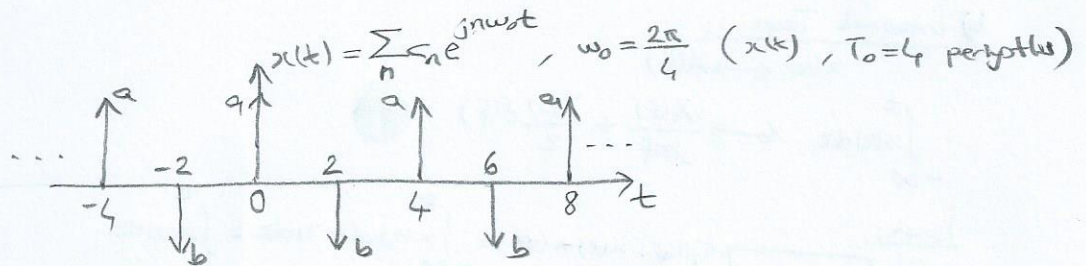 x(t) = ∑ₙ cₙ e^{jnω₀t} , ω₀ = 2π/4 (x(t), T₀=4 periyotlu)
a a a a
... -2 2 6 ...
-4 0 4 8 t
b b b